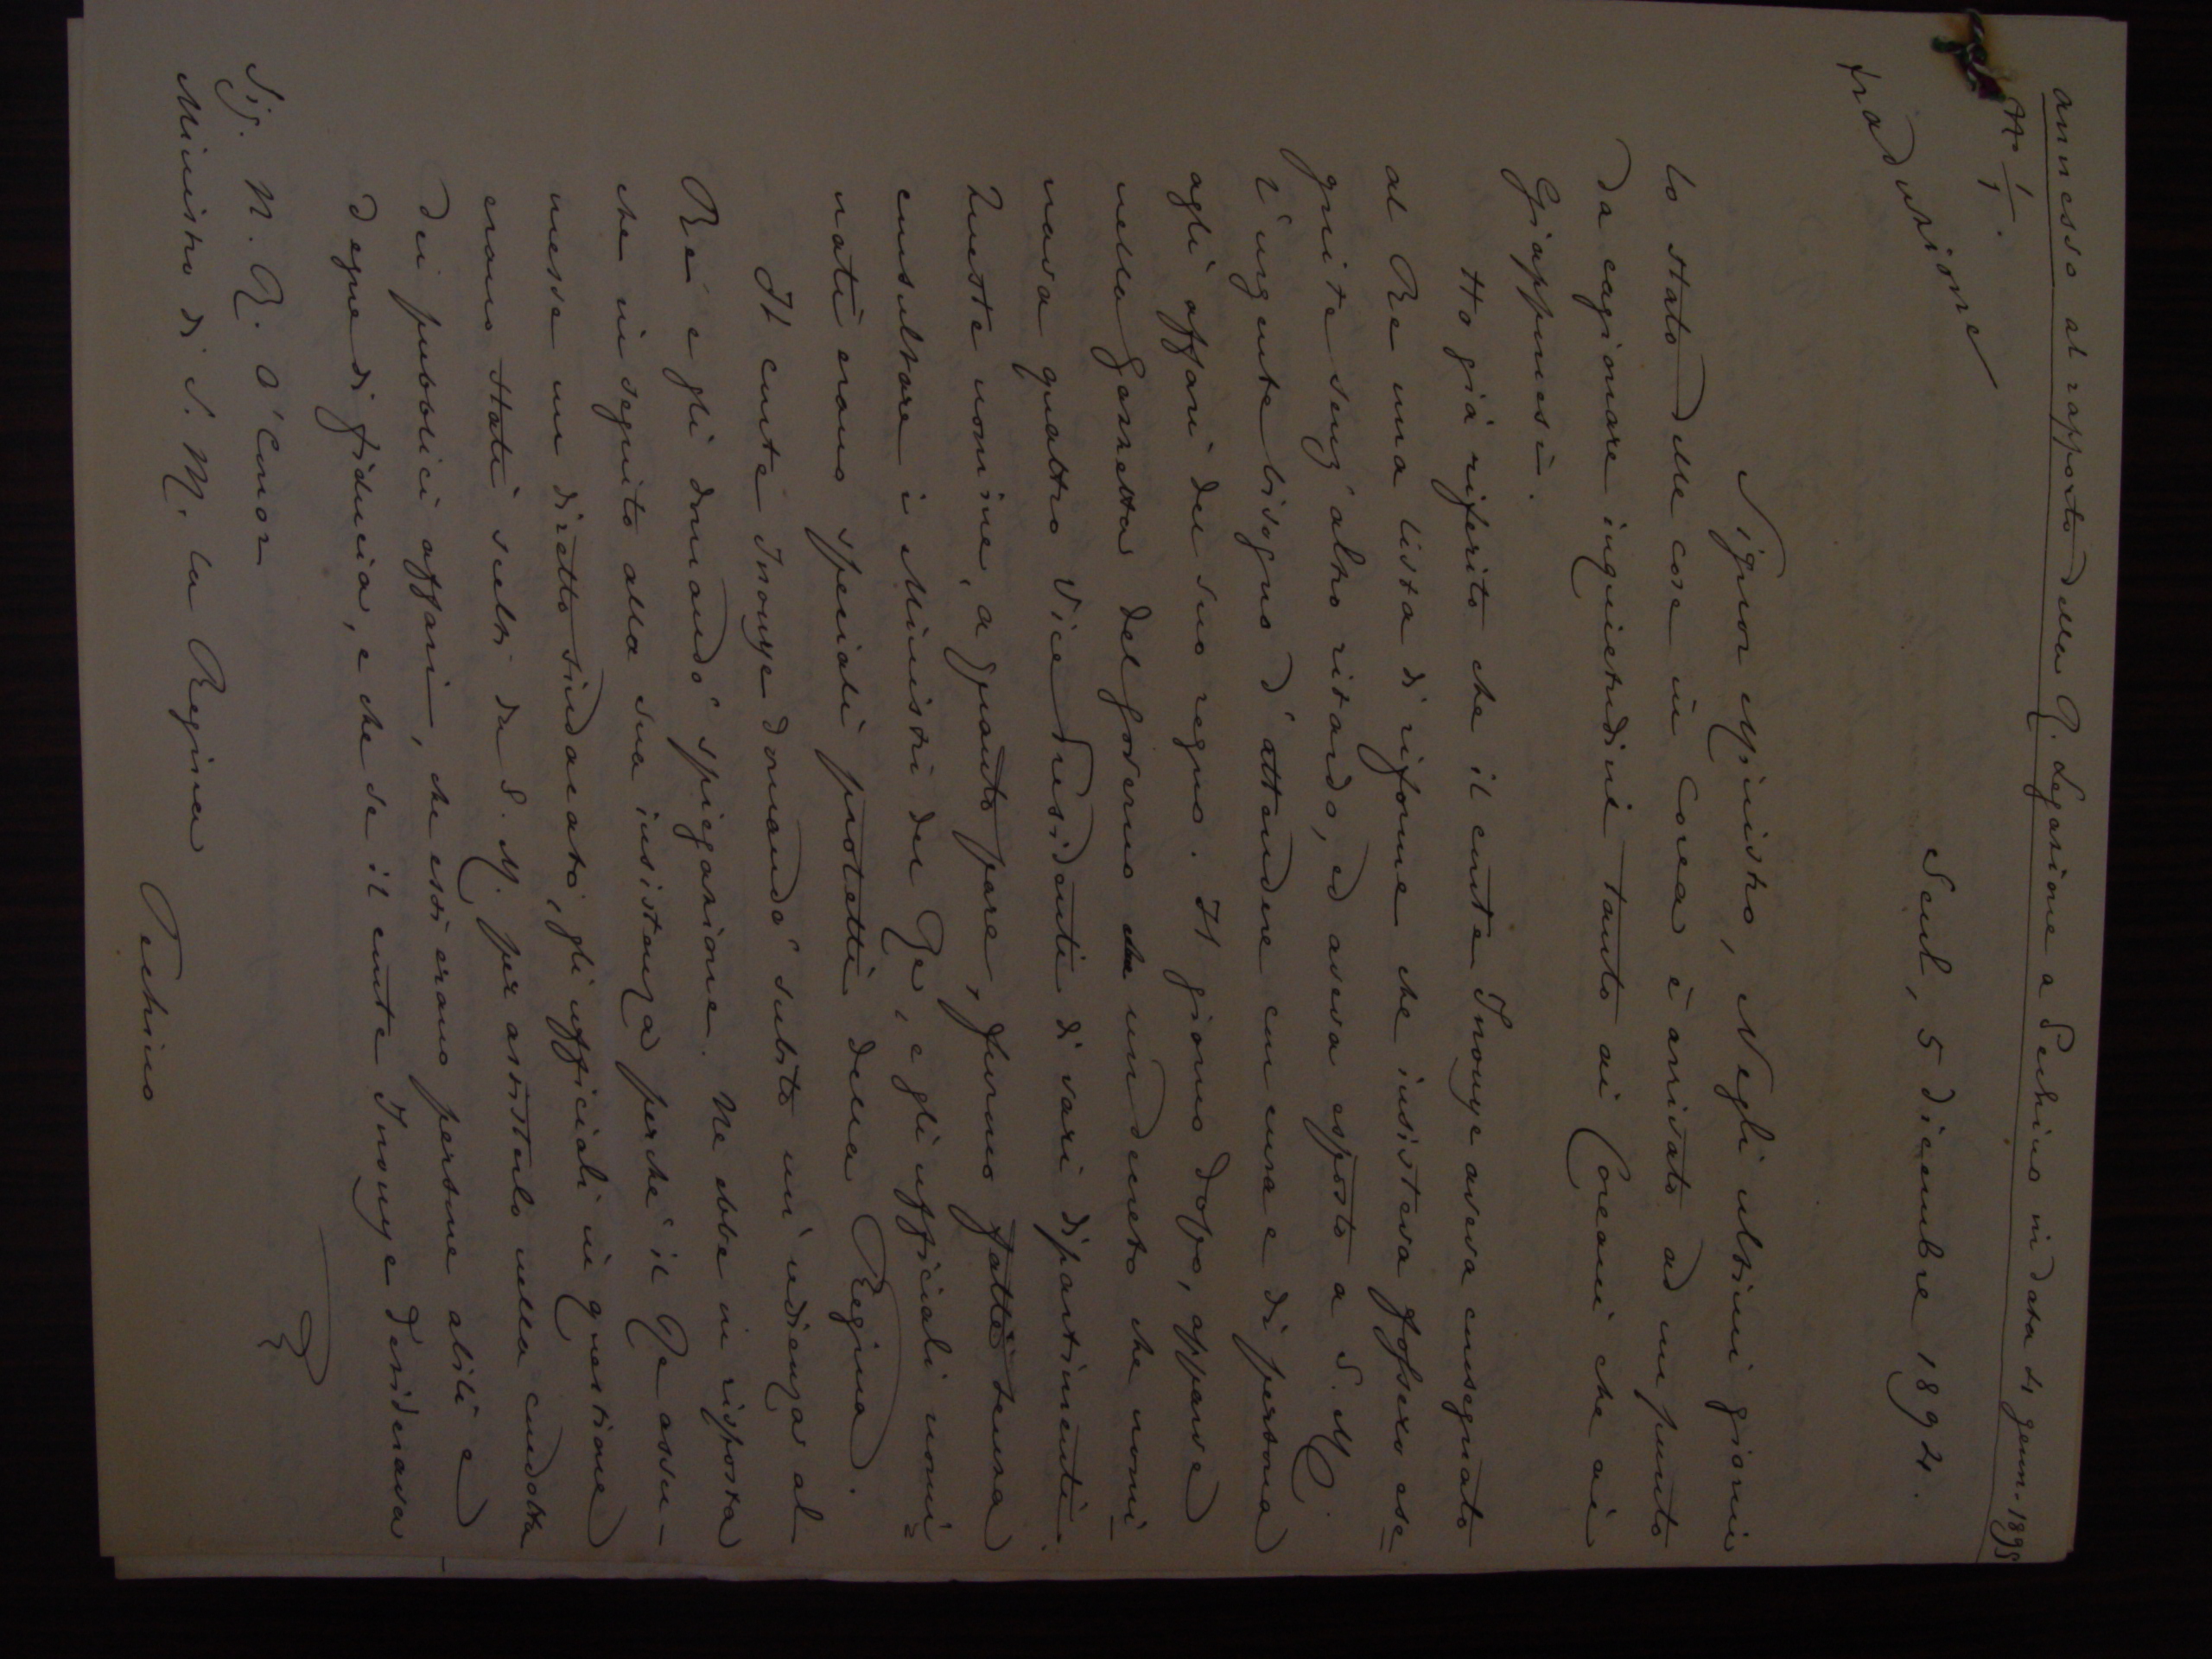 annesso al rapporto della R. Legazione a Pechino in data 4 genn. 1895
N° 1/1.
traduzione
Seul, 5 dicembre 1894.
Signor Ministro, Negli ultimi giorni
lo stato delle cose in Corea è arrivato ad un punto
da cagionare inquietudini tanto ai Coreani che ai
Giapponesi.
Ho già riferito che il conte Inouye aveva consegnato
al Re una lista di riforme che insisteva fossero ese=
guite senz'altro ritardo, ed aveva esposto a S. M.
l'urgente bisogno d'attendere con cura e di persona
agli affari del suo regno. Il giorno dopo, apparve
nella gazzetta del governo un decreto che nomi=
nava quattro Vice Presidenti di vari dipartimenti.
Queste nomine, a quanto pare, furono fatte senza
consultare i Ministri del Re, e gli ufficiali nomi=
nati erano speciali protetti della Regina.
Il conte Inouye domandò subito un'udienza al
Re e gli domandò spiegazione. Ne ebbe in risposta
che in seguito alla sua insistenza perchè il Re assu-
messe un diretto sindacato, gli ufficiali in questione
erano stati scelti da S. M. per assisterlo nella condotta
dei pubblici affari, che essi erano persone abili e
degne di fiducia, e che se il conte Inouye desiderava
Sig. N. R. O'Conor
Ministro di S. M. la Regina
Pechino